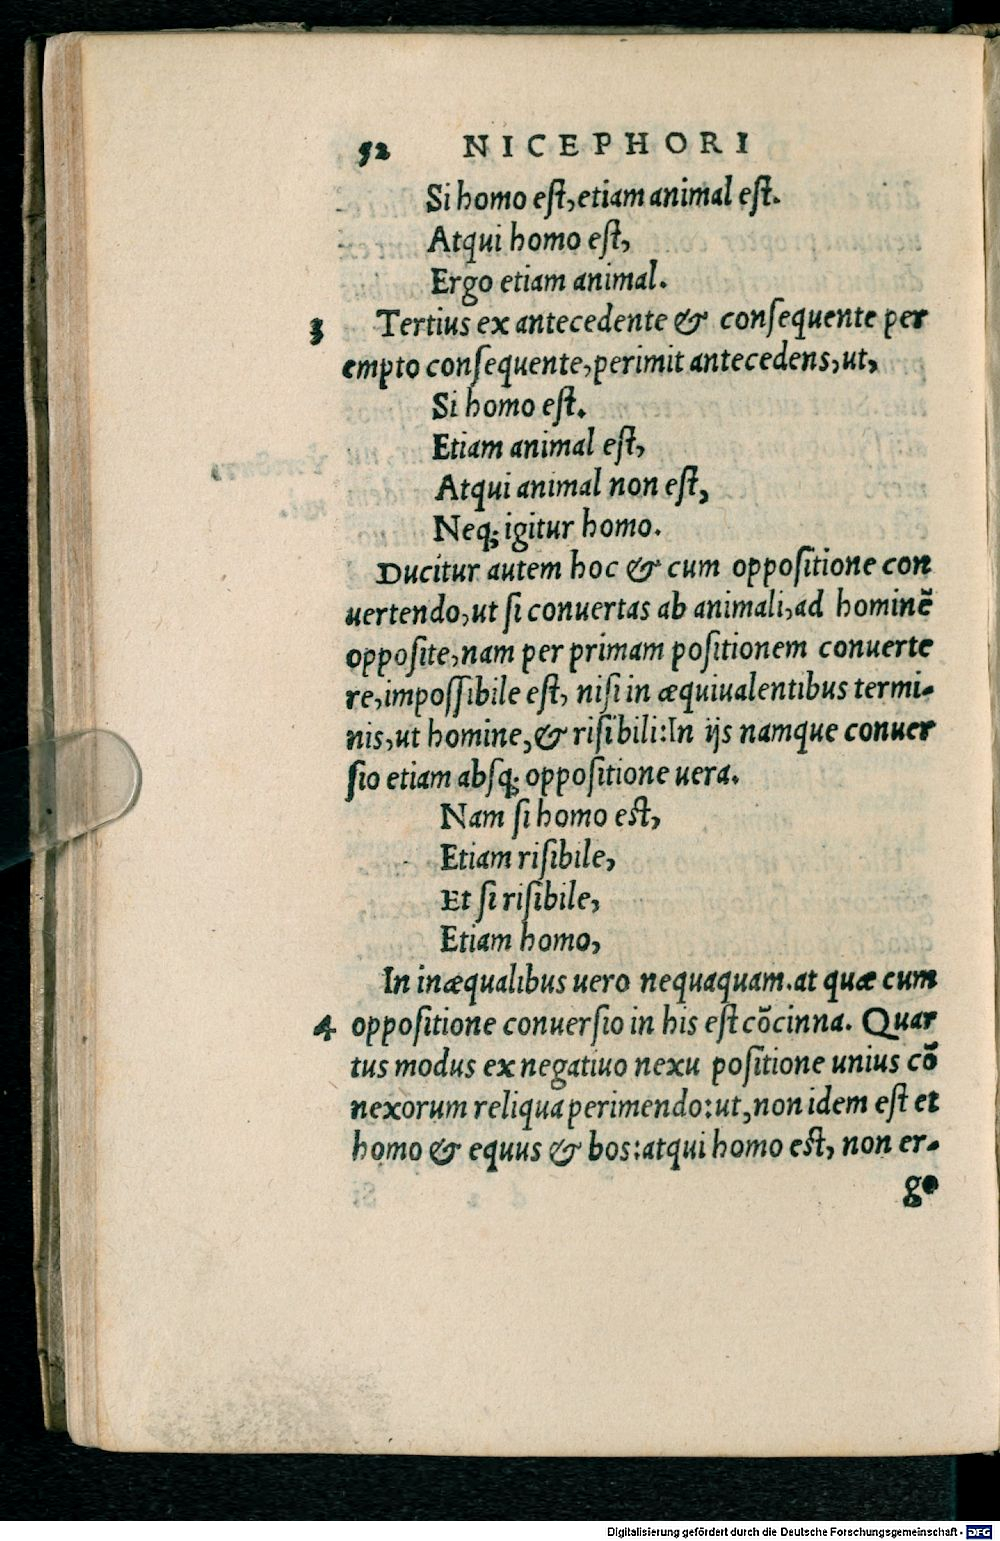 52 NICEPHORI
Si homo eſt, etiam animal eſt.
Atqui homo eſt,
Ergo etiam animal.
3 Tertius ex antecedente & conſequente per
empto conſequente, perimit antecedens, ut,
Si homo eſt.
Etiam animal eſt,
Atqui animal non eſt,
Neq; igitur homo.
Ducitur autem hoc & cum oppoſitione con
uertendo, ut ſi conuertas ab animali, ad hominẽ
oppoſite, nam per primam poſitionem conuerte
re, impoſſibile eſt, niſi in æquiualentibus termi-
nis, ut homine, & riſibili: In ijs namque conuer
ſio etiam abſq; oppoſitione uera.
Nam ſi homo eſt,
Etiam riſibile,
Et ſi riſibile,
Etiam homo,
In inæqualibus uero nequaquam. at quæ cum
4 oppoſitione conuerſio in his eſt cõcinna. Quar
tus modus ex negatiuo nexu poſitione unius cõ
nexorum reliqua perimendo: ut, non idem eſt et
homo & equus & bos: atqui homo eſt, non er-
go
Digitalisierung gefördert durch die Deutsche Forschungsgemeinschaft - DFG